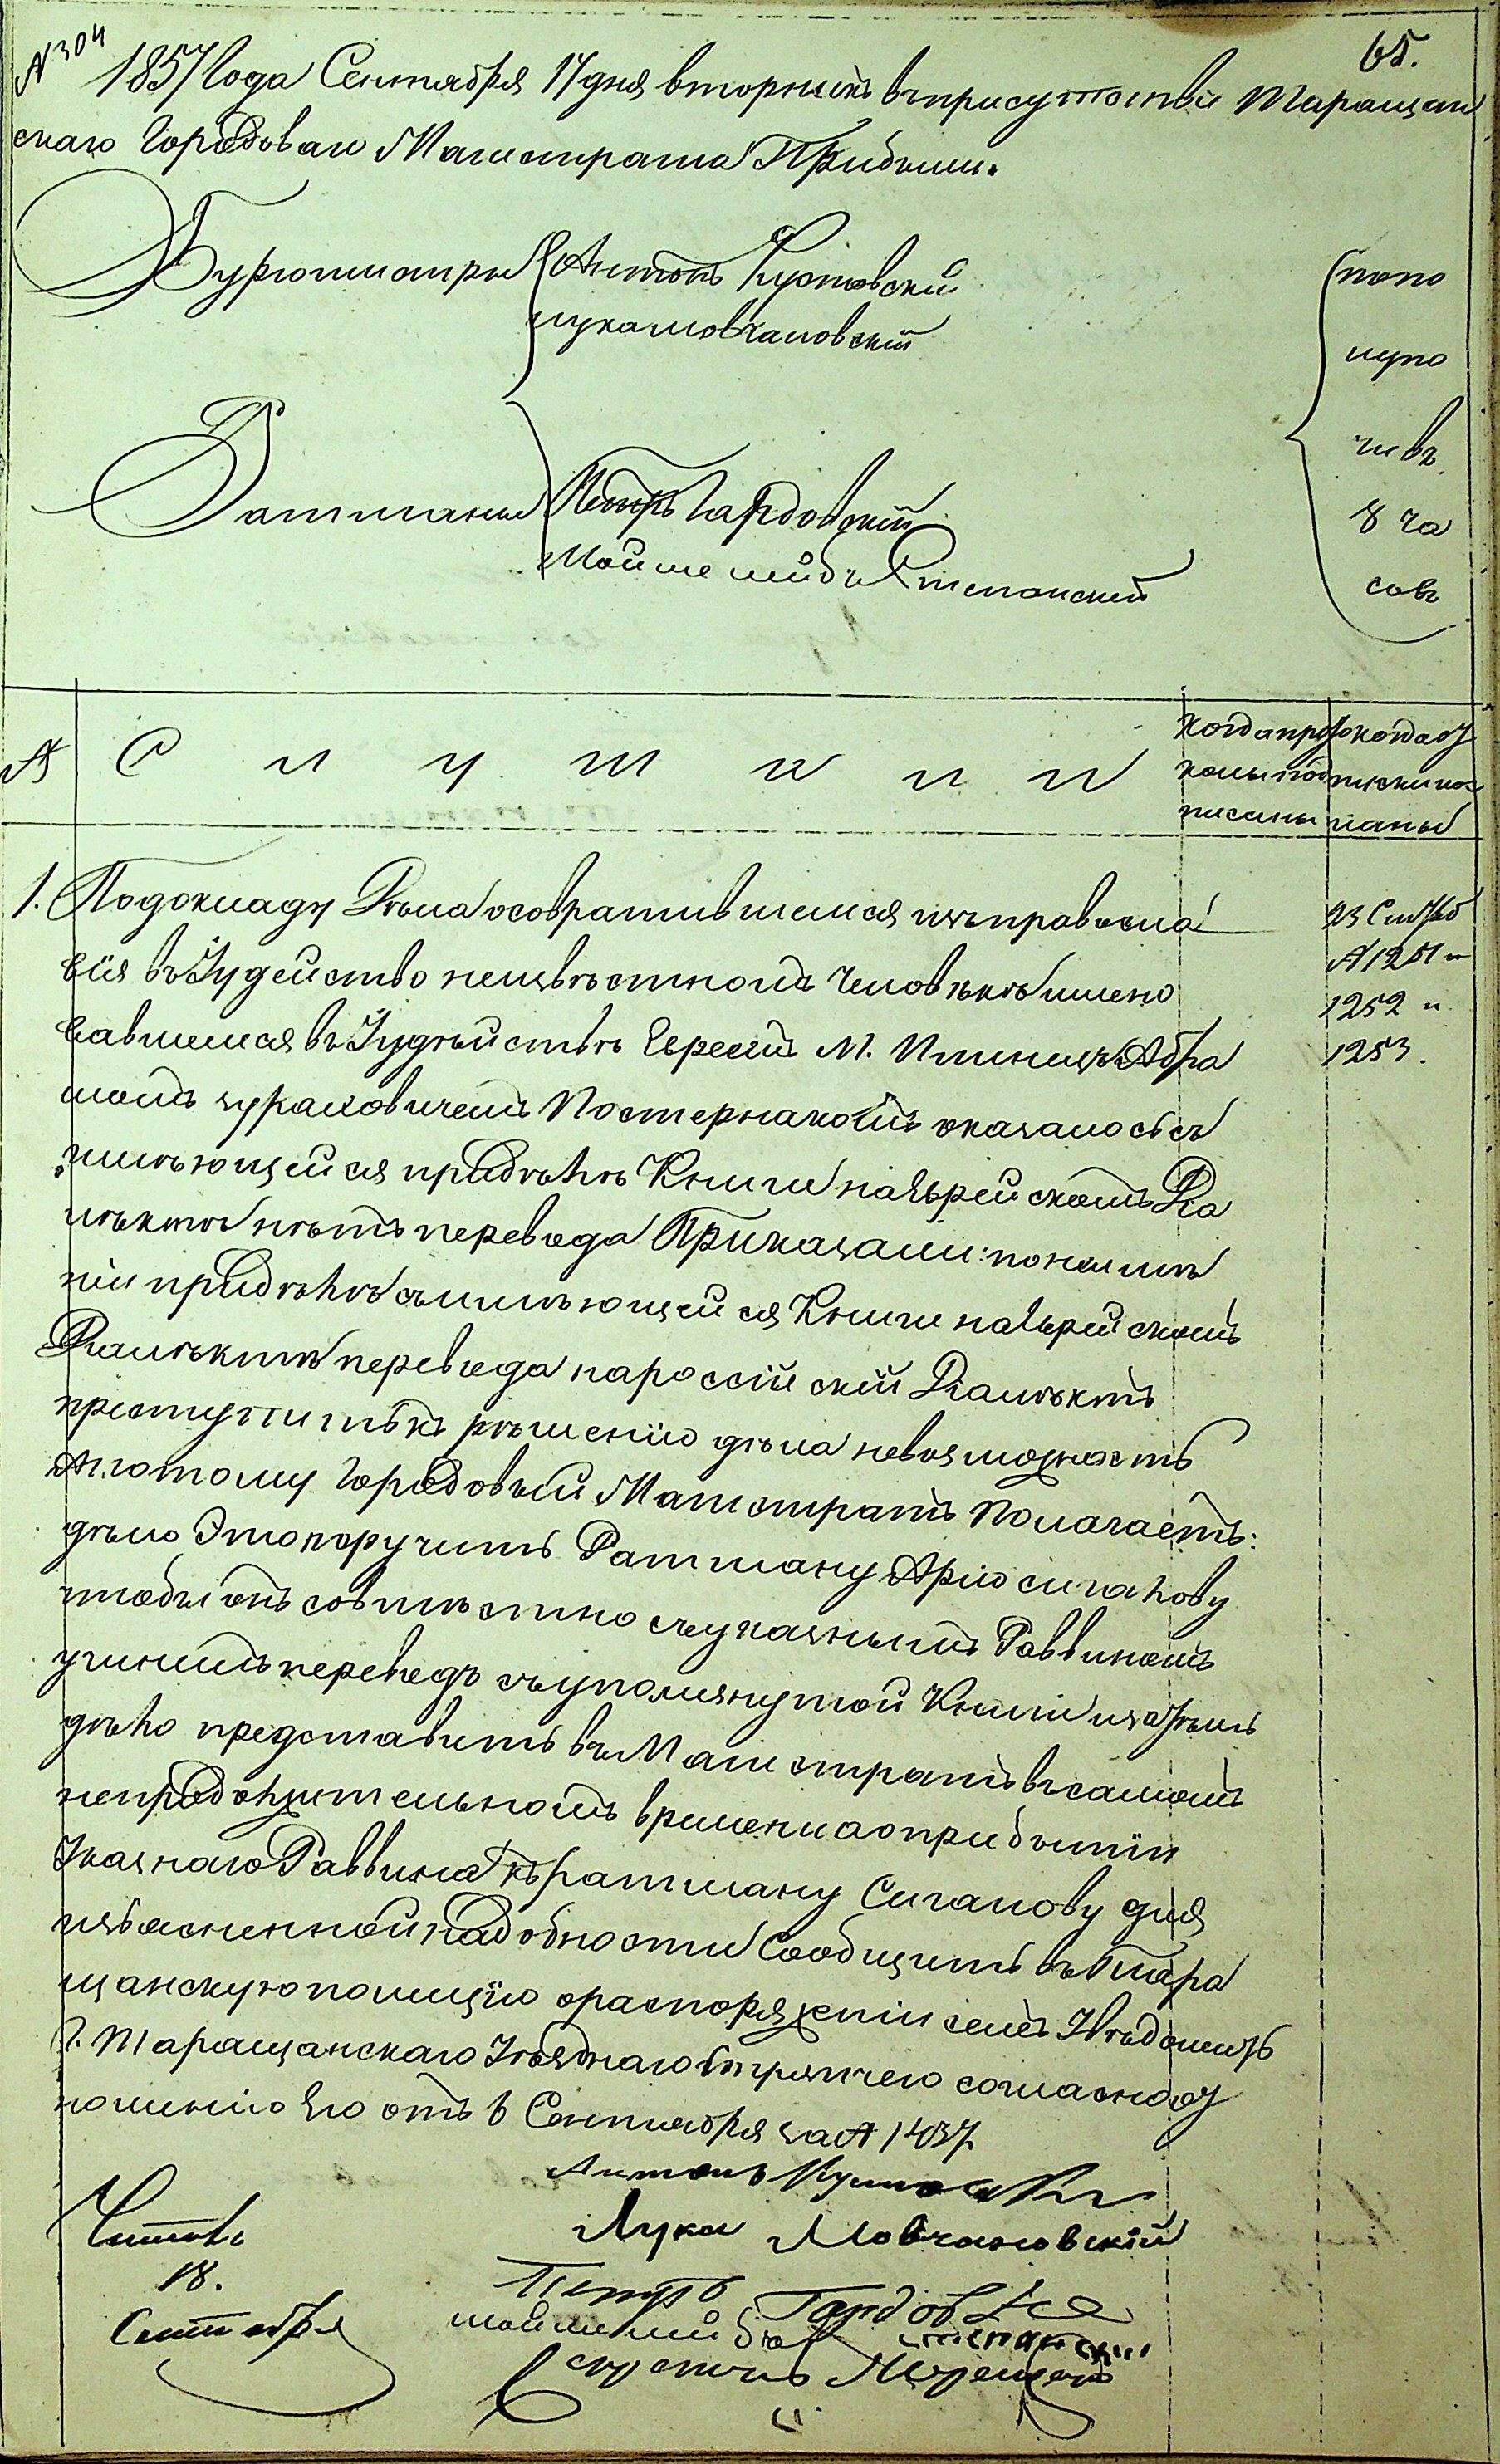 № 304
65.
1857 года Сентября 17 дня вторникъ въ присутствіе Таращан
скаго Городоваго Магистрата Прибыли.
Бургомистры Антонъ
Лука Мовчановскій
Ратманы Петръ Гардовскій
Мойше Лейбъ Степанскій
попо
лупо
чивъ
8 ча
совъ
№ С л у ш а л и
Когда прото
колы под
писаны
когда от
пуски пос
ланы
1. По докладу Дѣла о совратившемся изъ правосла
вія въ Іудейство неизвѣстномъ человѣкѣ имено
вавшемся въ Іудѣйствѣ Евреемъ М. Абра
момъ Постернакомъ оказалось съ
имѣющейся при дѣлѣ Книги на Еврейскомъ Діа
лѣктѣ нѣтъ перевода Приказали: по неимѣ
ніи при дѣлѣ съ имѣющейся Книги на Еврейскомъ
Діалѣктѣ перевода на россійскій Діалѣктъ
преступить къ рѣшенію дѣла невозможность
А потому Городовый Магистратъ Полагаетъ:
дѣло Это поручить Ратману Арію Сигалову
чтобы онъ совмѣстно съ указнымъ Раввиномъ
учинилъ переводъ съ упомянутой Книги и затѣмъ
дѣло представить въ Магистратъ въ самомъ
непродолжительномъ времени а о прибытіи
Указнаго Раввина къ ратману Сигалову для
изъясненной надобности Сообщить въ Тара
щанскую полицію о распоряженіи семъ Увѣдомить
Г. Таращанскаго Уѣзднаго Стряпчего согласно от
ношенію Его отъ 6 Сентября за № 1437
23 Сентяб
№ 1251 и
1252 и
1253.
Антонъ
Лука Мовчановскій
Петръ Гардовскій
Мойше Лейбъ Степанскій
Читалъ
18.
Сентября